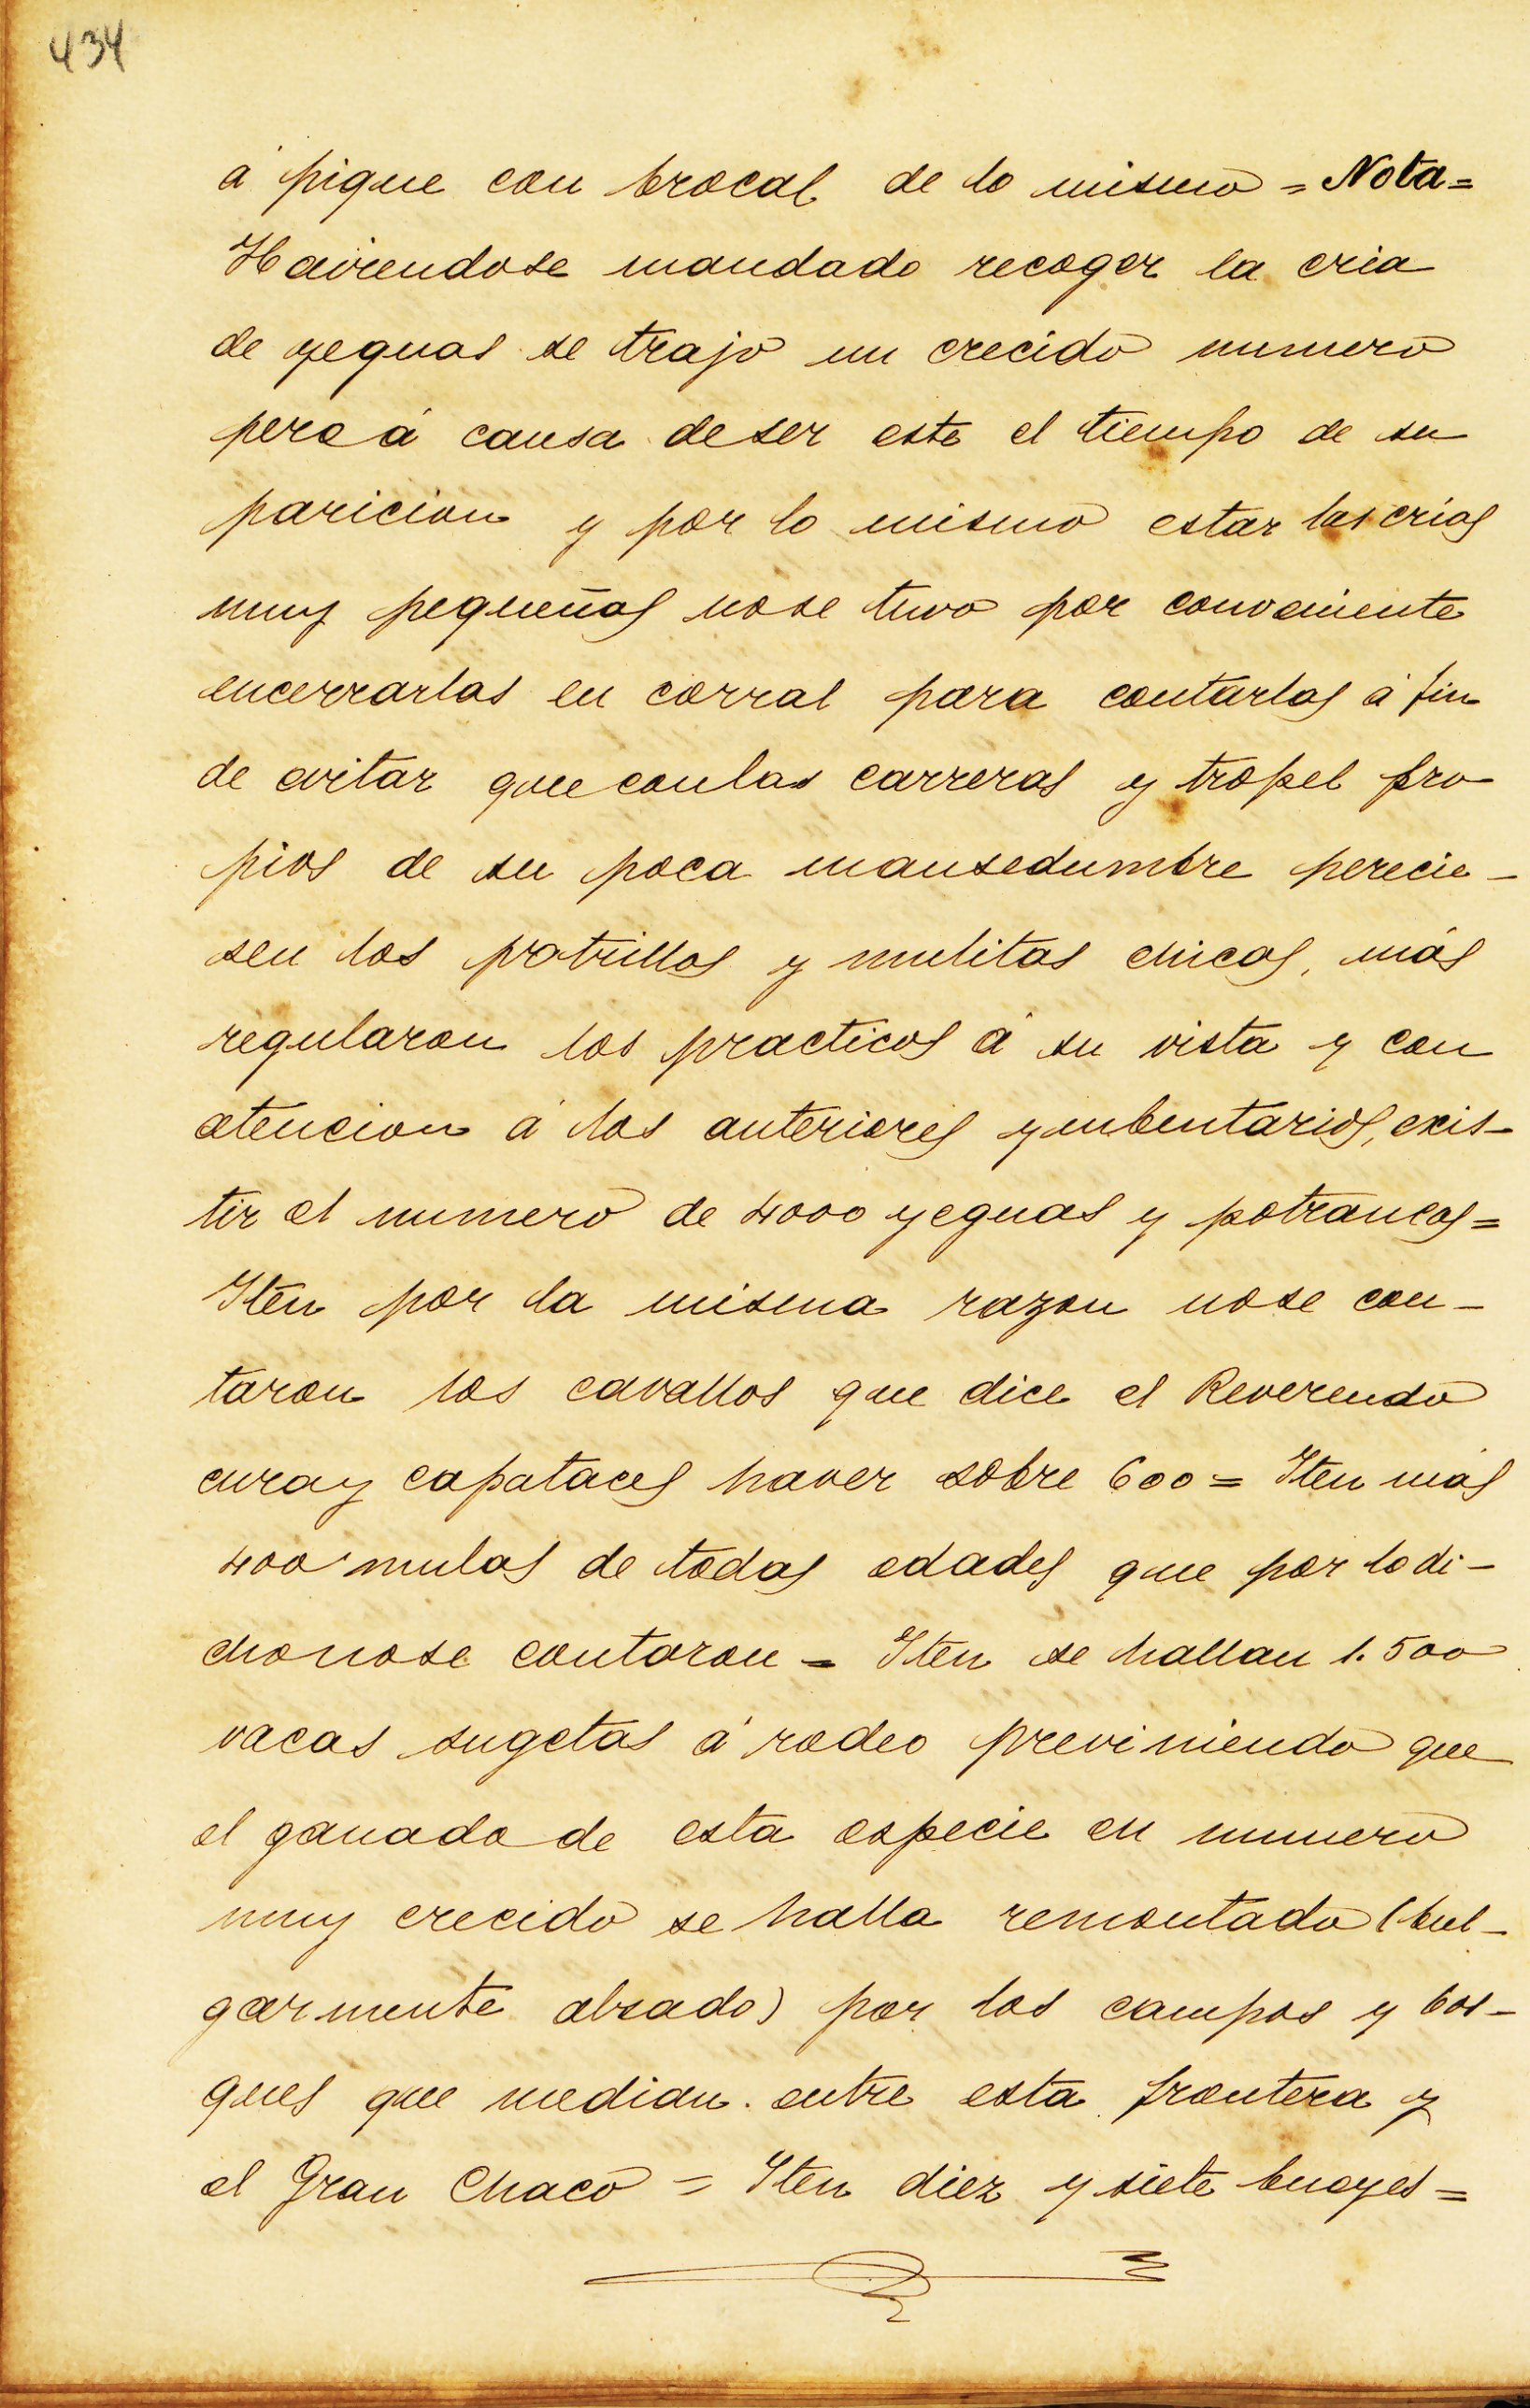 434
á pique con brocal de lo mismo = Nota =
Haviendose mandado recoger la cria
de yeguas se trajo un crecido numero
pero á causa de ser este el tiempo de su
paricion y por lo mismo estar las crias
muy pequeñas nose tuvo por conveniente
encerrarlas en corral para contarlas á fin
de evitar que conlas carreras y tropel pro
pios de su poca mansedumbre perecie-
sen los potrillos y mulitas chicas, más
regularon los practicos á su vista y con
atencion á los anteriores ynbentarios, exis-
tir el numero de 4000 yeguas y potrancas =
Iten por la misma razon nose con-
taron los cavallos que dice el Reverendo
cura y capataces haver sobre 600 = Iten más
400 mulas de todas edades que por lo di-
chonose contaron = Iten se hallan 1.500
vacas sugetas á rodeo previniendo que
el ganado de esta especie en numero
muy crecido se halla remontado (bul-
garmente alsado) por los campos y bos-
ques que median entre esta frontera y
el Gran Chaco = Iten diez y siete bueyes =